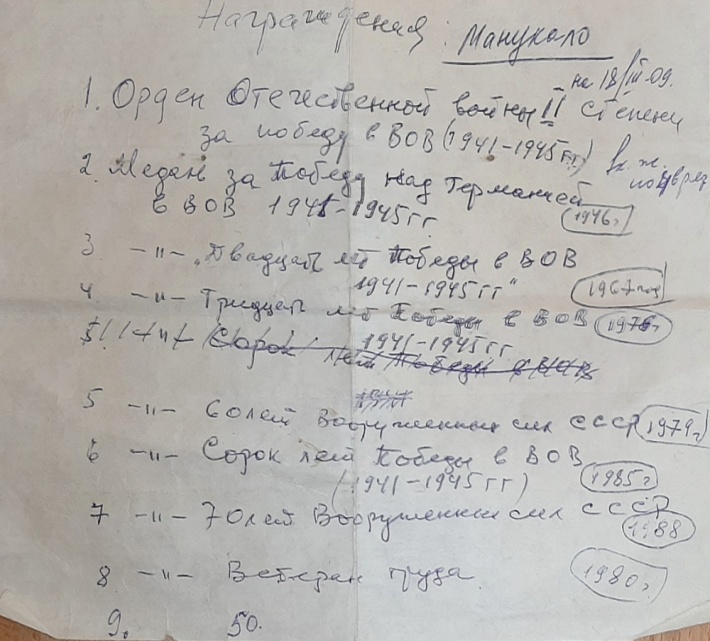 Награждения: Манукало
на 18/III-09.
1. Орден Отечественной войны II степени
за победу в ВОВ (1941-1945 гг.)
2. Медаль за Победу над Германией
в ВОВ 1941-1945 гг. (1946 г.)
3 -"- "Двадцать лет Победы в ВОВ
1941-1945 гг" (1967 год)
4 -"- Тридцать лет Победы в ВОВ (1976 г)
1941-1945 гг
5 -"- Сорок лет Победы в ВОВ
5 -"- 60 лет Вооруженных сил СССР (1979 г)
6 -"- Сорок лет Победы в ВОВ
(1941-1945 гг) (1985 г)
7 -"- 70 лет Вооруженных сил СССР
(1988)
8 -"- Ветеран труда (1980 г.)
9. 50.